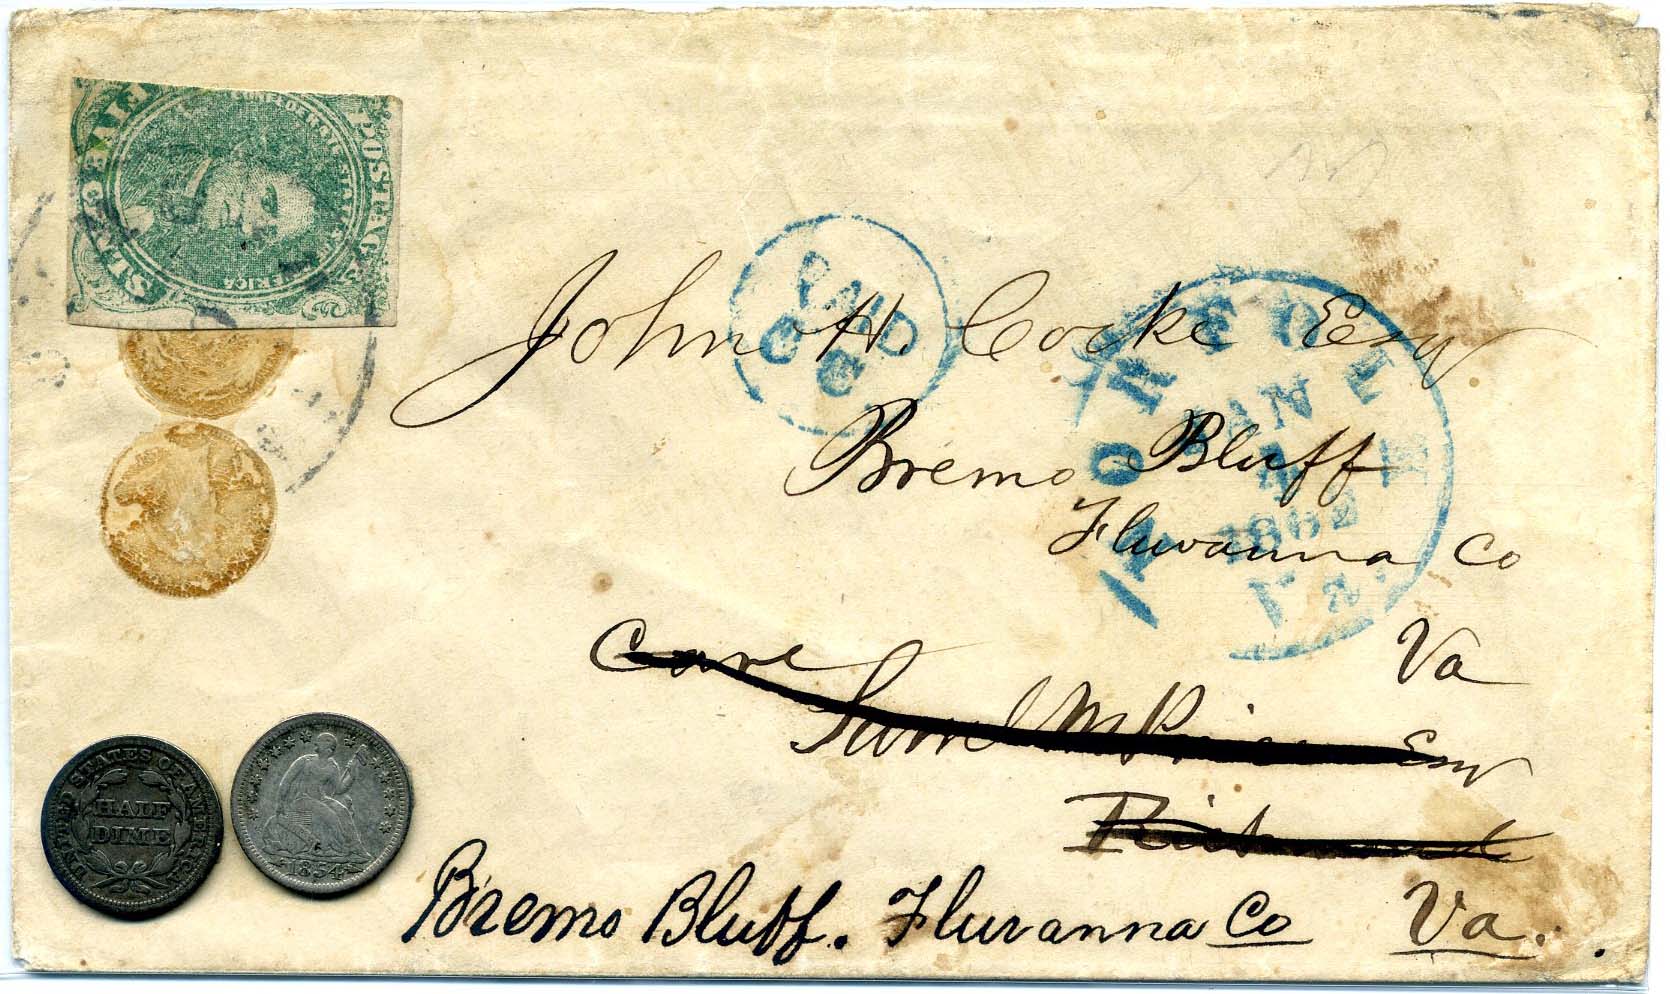 FIVE CENTS
POSTAGE
CONFEDERATE STATES OF AMERICA
PAID
5 C
John H. Cocke Esqr
Bremo Bluff
Fluvanna Co
Va
Care
Saml M Price Esqr
Richmond
Bremo Bluff. Fluvanna Co Va.
JAN
1862
Va.
UNITED STATES OF AMERICA
HALF
DIME
1854